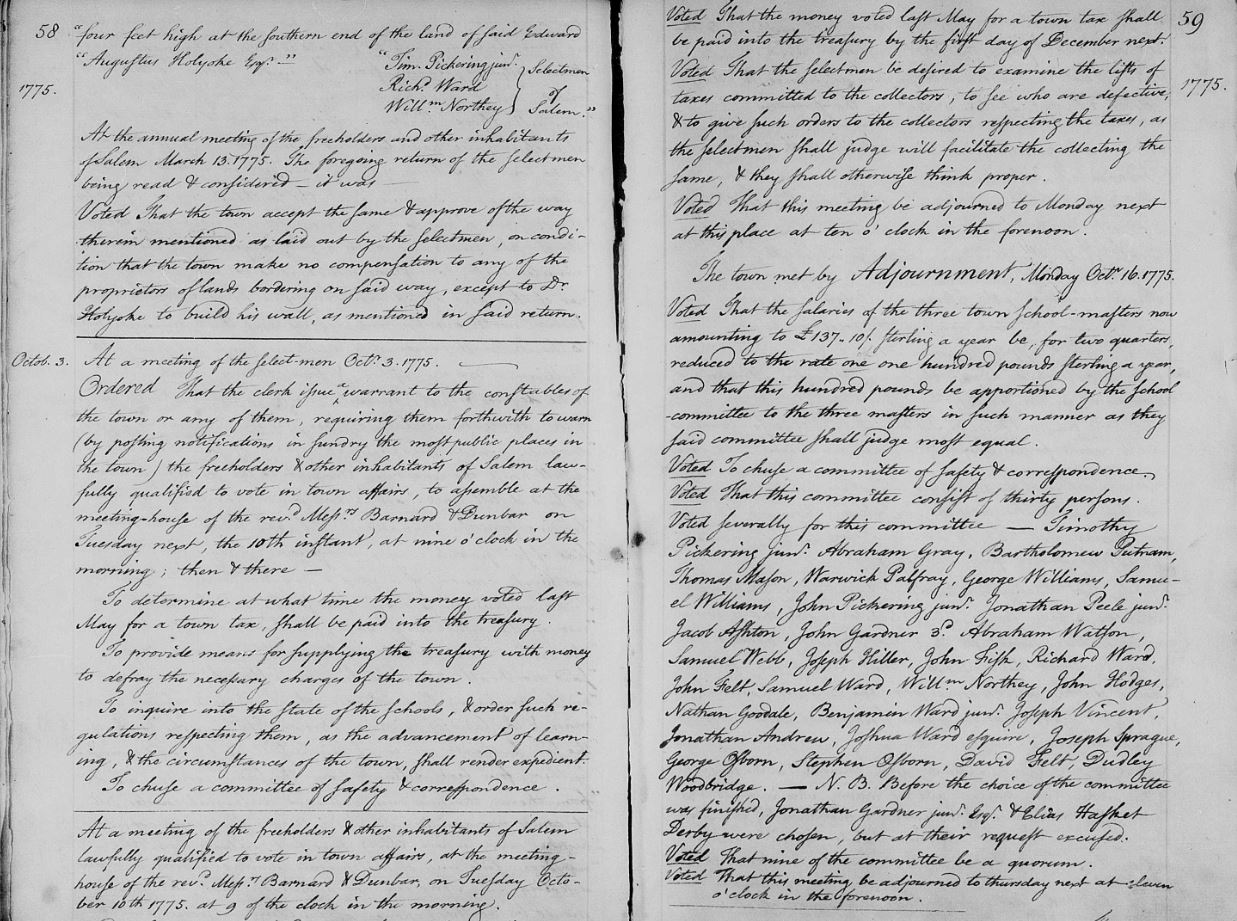 58
"four feet high at the southern end of the land of said Edward
"Augustus Holyoke Esqr. —"
"Tim. Pickering junr.
Selectmen
1775.
Richd. Ward
of
Willm Northey
Salem."
At the annual meeting of the freeholders and other inhabitants
of Salem March 13. 1775. The foregoing return of the selectmen
being read & considered — it was —
Voted That the town accept the same & approve of the way
therein mentioned as laid out by the selectmen, on condi-
tion that the town make no compensation to any of the
proprietors of lands bordering on said way, except to Dr.
Holyoke to build his wall, as mentioned in said return.
Octob. 3.
At a meeting of the select-men Octr. 3. 1775.
Ordered That the clerk issue a warrant to the constables of
the town or any of them, requiring them forthwith to warn
(by posting notifications in sundry the most public places in
the town) the freeholders & other inhabitants of Salem law-
fully qualified to vote in town affairs, to assemble at the
meeting-house of the revd. Messrs. Barnard & Dunbar on
Tuesday next, the 10th instant, at nine o'clock in the
morning; then & there —
To determine at what time the money voted last
May for a town tax, shall be paid into the treasury.
To provide means for supplying the treasury with money
to defray the necessary charges of the town.
To inquire into the state of the schools, & order such re-
gulations respecting them, as the advancement of learn-
ing, & the circumstances of the town, shall render expedient.
To chuse a committee of safety & correspondence.
At a meeting of the freeholders & other inhabitants of Salem
lawfully qualified to vote in town affairs, at the meeting-
house of the revd. Messrs. Barnard & Dunbar, on Tuesday Octo-
ber 10th 1775. at 9 of the clock in the morning.
59
Voted That the money voted last May for a town tax shall
be paid into the treasury by the first day of December next.
1775.
Voted That the selectmen be desired to examine the lists of
taxes committed to the collectors, to see who are defective,
& to give such orders to the collectors respecting the taxes, as
the selectmen shall judge will facilitate the collecting the
same, & they shall otherwise think proper.
Voted That this meeting be adjourned to Monday next
at this place at ten o'clock in the forenoon.
The town met by Adjournment, Monday Octr. 16. 1775.
Voted That the salaries of the three town school-masters now
amounting to £137.. 10/. sterling a year be, for two quarters,
reduced to the rate one one hundred pounds sterling a year,
and that this hundred pounds be apportioned by the school
-committee to the three masters in such manner as they
said committee shall judge most equal.
Voted To chuse a committee of safety & correspondence.
Voted That this committee consist of thirty persons.
Voted severally for this committee — Timothy
Pickering junr. Abraham Gray, Bartholomew Putnam,
Thomas Mason, Warwick Palfray, George Williams, Samu-
el Williams, John Pickering junr. Jonathan Peele junr.
Jacob Ashton, John Gardner 3d. Abraham Watson,
Samuel Webb, Joseph Hiller, John Fisk, Richard Ward,
John Felt, Samuel Ward, Willm Northey, John Hodges,
Nathan Goodale, Benjamin Ward junr. Joseph Vincent,
Jonathan Andrew, Joshua Ward esquire, Joseph Sprague,
George Osborn, Stephen Osborn, David Felt, Dudley
Woodbridge. — N. B. Before the choice of the committee
was finished, Jonathan Gardner junr. Esqr. & Elias Hasket
Derby were chosen, but at their request excused.
Voted That nine of the committee be a quorum.
Voted That this meeting be adjourned to thursday next at eleven
o'clock in the forenoon.